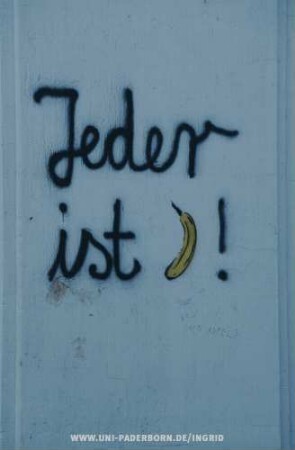 Jeder
ist !
WWW.UNI-PADERBORN.DE/INGRID